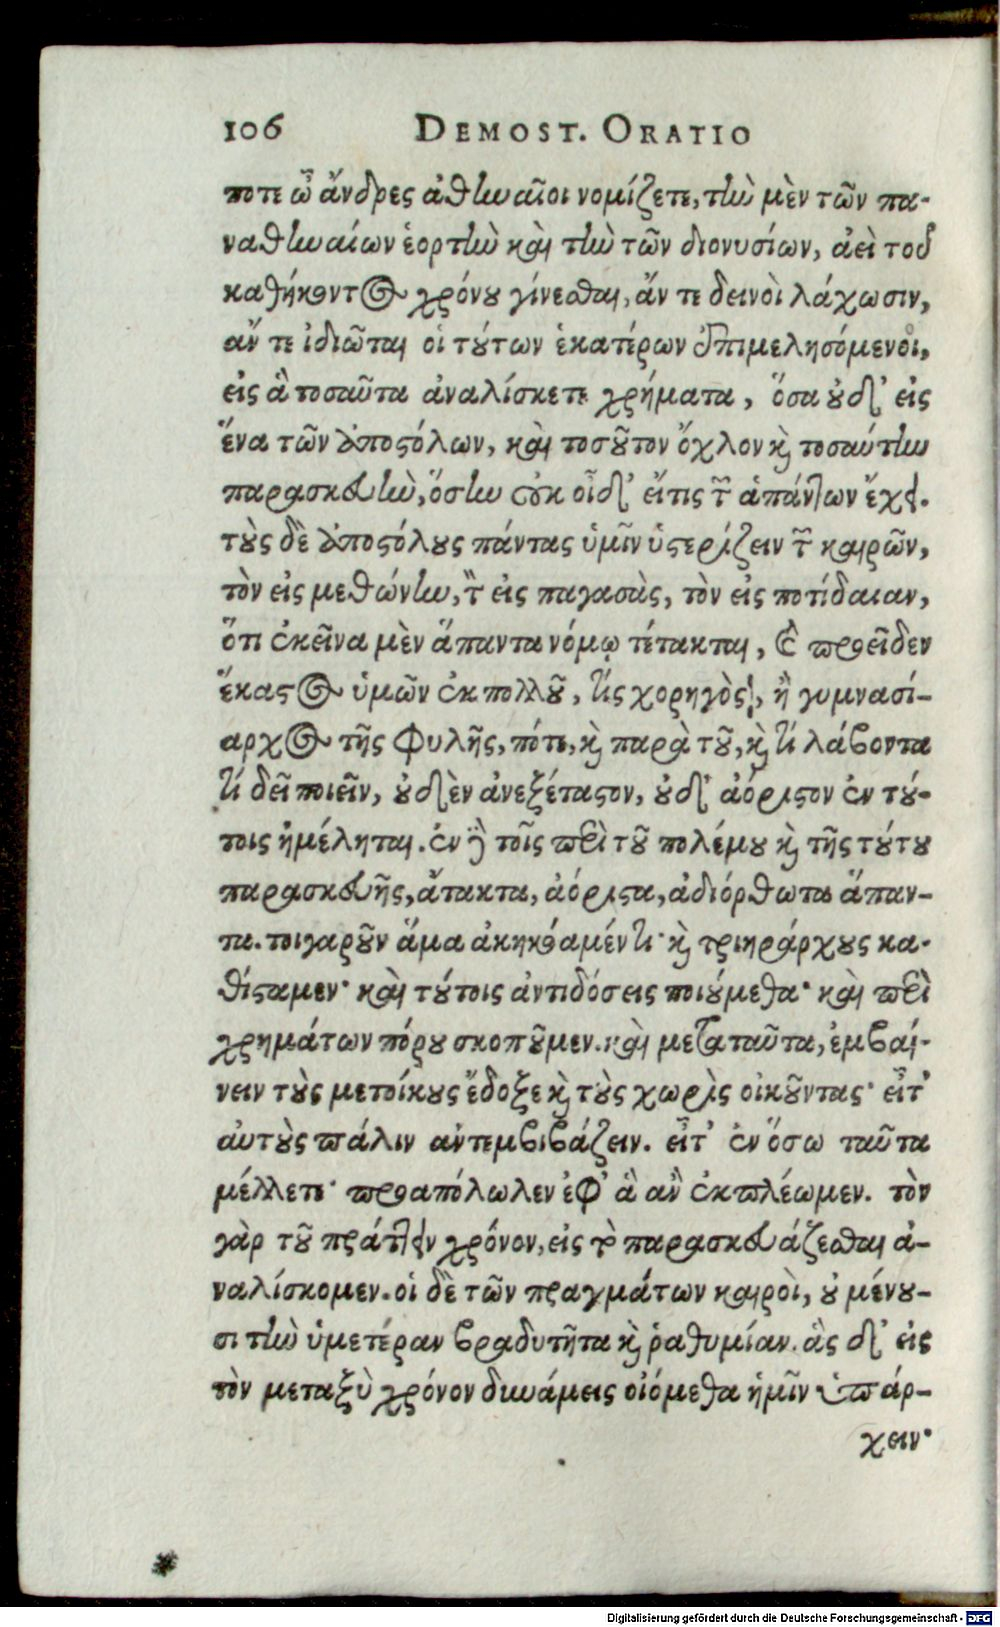 106 DEMOST. ORATIO
ποτε ὦ ἄνδρες ἀθηναῖοι νομίζετε, τὴν μὲν τῶν πα-
ναθηναίων ἑορτὴν καὶ τὴν τῶν διονυσίων, ἀεὶ τοῦ
καθήκοντος χρόνου γίνεσθαι, ἄν τε δεινοὶ λάχωσιν,
ἄν τε ἰδιῶται οἱ τούτων ἑκατέρων ἐπιμελησόμενοι,
εἰς ἃ τοσαῦτα ἀναλίσκετε χρήματα, ὅσα οὐδ' εἰς
ἕνα τῶν ἀποστόλων, καὶ τοσοῦτον ὄχλον καὶ τοσαύτην
παρασκευὴν, ὅσην οὐκ οἶδ' εἴτις τῶν ἁπάντων ἔχει.
τοὺς δὲ ἀποστόλους πάντας ὑμῖν ὑστερίζειν τῶν καιρῶν,
τὸν εἰς μεθώνην, τὸν εἰς παγασὰς, τὸν εἰς ποτίδαιαν,
ὅτι ἐκεῖνα μὲν ἅπαντα νόμῳ τέτακται, καὶ προεῖδεν
ἕκαστος ὑμῶν ἐκ πολλοῦ, τίς χορηγὸς, ἢ γυμνασί-
αρχος τῆς φυλῆς, πότε, καὶ παρὰ τοῦ, καὶ τί λάβοντα
τί δεῖ ποιεῖν, οὐδὲν ἀνεξέταστον, οὐδ' ἀόριστον ἐν τού-
τοις ἠμέληται. ἐν δὲ τοῖς περὶ τοῦ πολέμου καὶ τῆς τούτου
παρασκευῆς, ἄτακτα, ἀόριστα, ἀδιόρθωτα ἅπαν-
τα. τοιγαροῦν ἅμα ἀκηκόαμέν τι· καὶ τριηράρχους κα-
θίσταμεν· καὶ τούτοις ἀντιδόσεις ποιούμεθα· καὶ περὶ
χρημάτων πόρου σκοποῦμεν. καὶ μετὰ ταῦτα, ἐμβαί-
νειν τοὺς μετοίκους ἔδοξε καὶ τοὺς χωρὶς οἰκοῦντας· εἶτ'
αὐτοὺς πάλιν ἀντεμβιβάζειν. εἶτ' ἐν ὅσω ταῦτα
μέλλετε· προαπόλωλεν ἐφ' ἃ ἂν ἐκπλέωμεν. τὸν
γὰρ τοῦ πράττειν χρόνον, εἰς τὸ παρασκευάζεσθαι ἀ-
ναλίσκομεν. οἱ δὲ τῶν πραγμάτων καιροὶ, οὐ μένου-
σι τὴν ὑμετέραν βραδυτῆτα καὶ ῥαθυμίαν. ἃς δ' εἰς
τὸν μεταξὺ χρόνον δυνάμεις οἰόμεθα ἡμῖν ὑπάρ-
χειν·
Digitalisierung gefördert durch die Deutsche Forschungsgemeinschaft - DFG